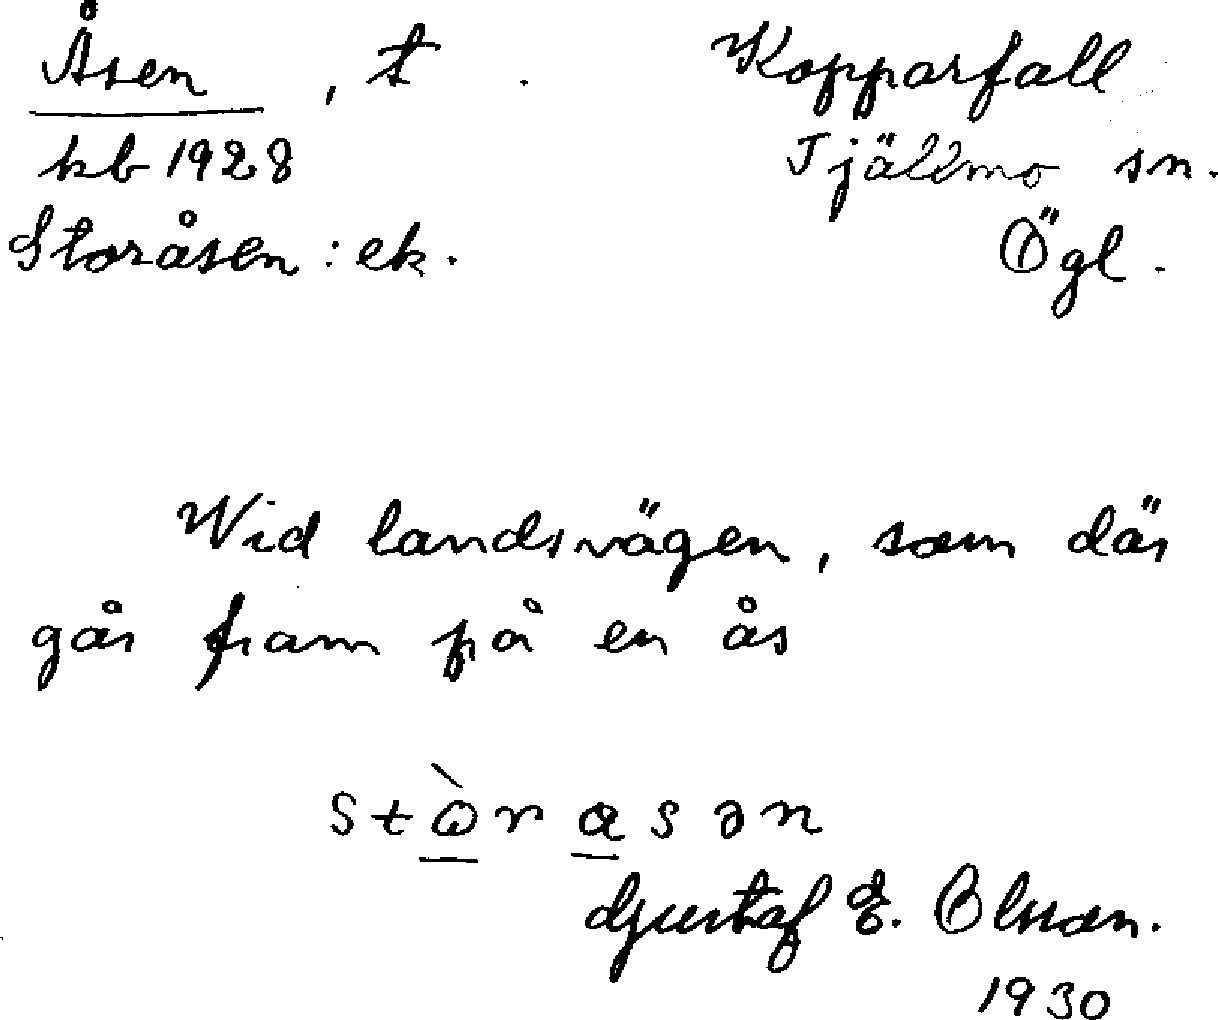 Åsen, t. Kopparfall
kb 1928 Tjällmo sn.
Storåsen: ek. Ögl.
Wid landsvägen, som där
går fram på en ås
Gustaf E. Olsson.
1930